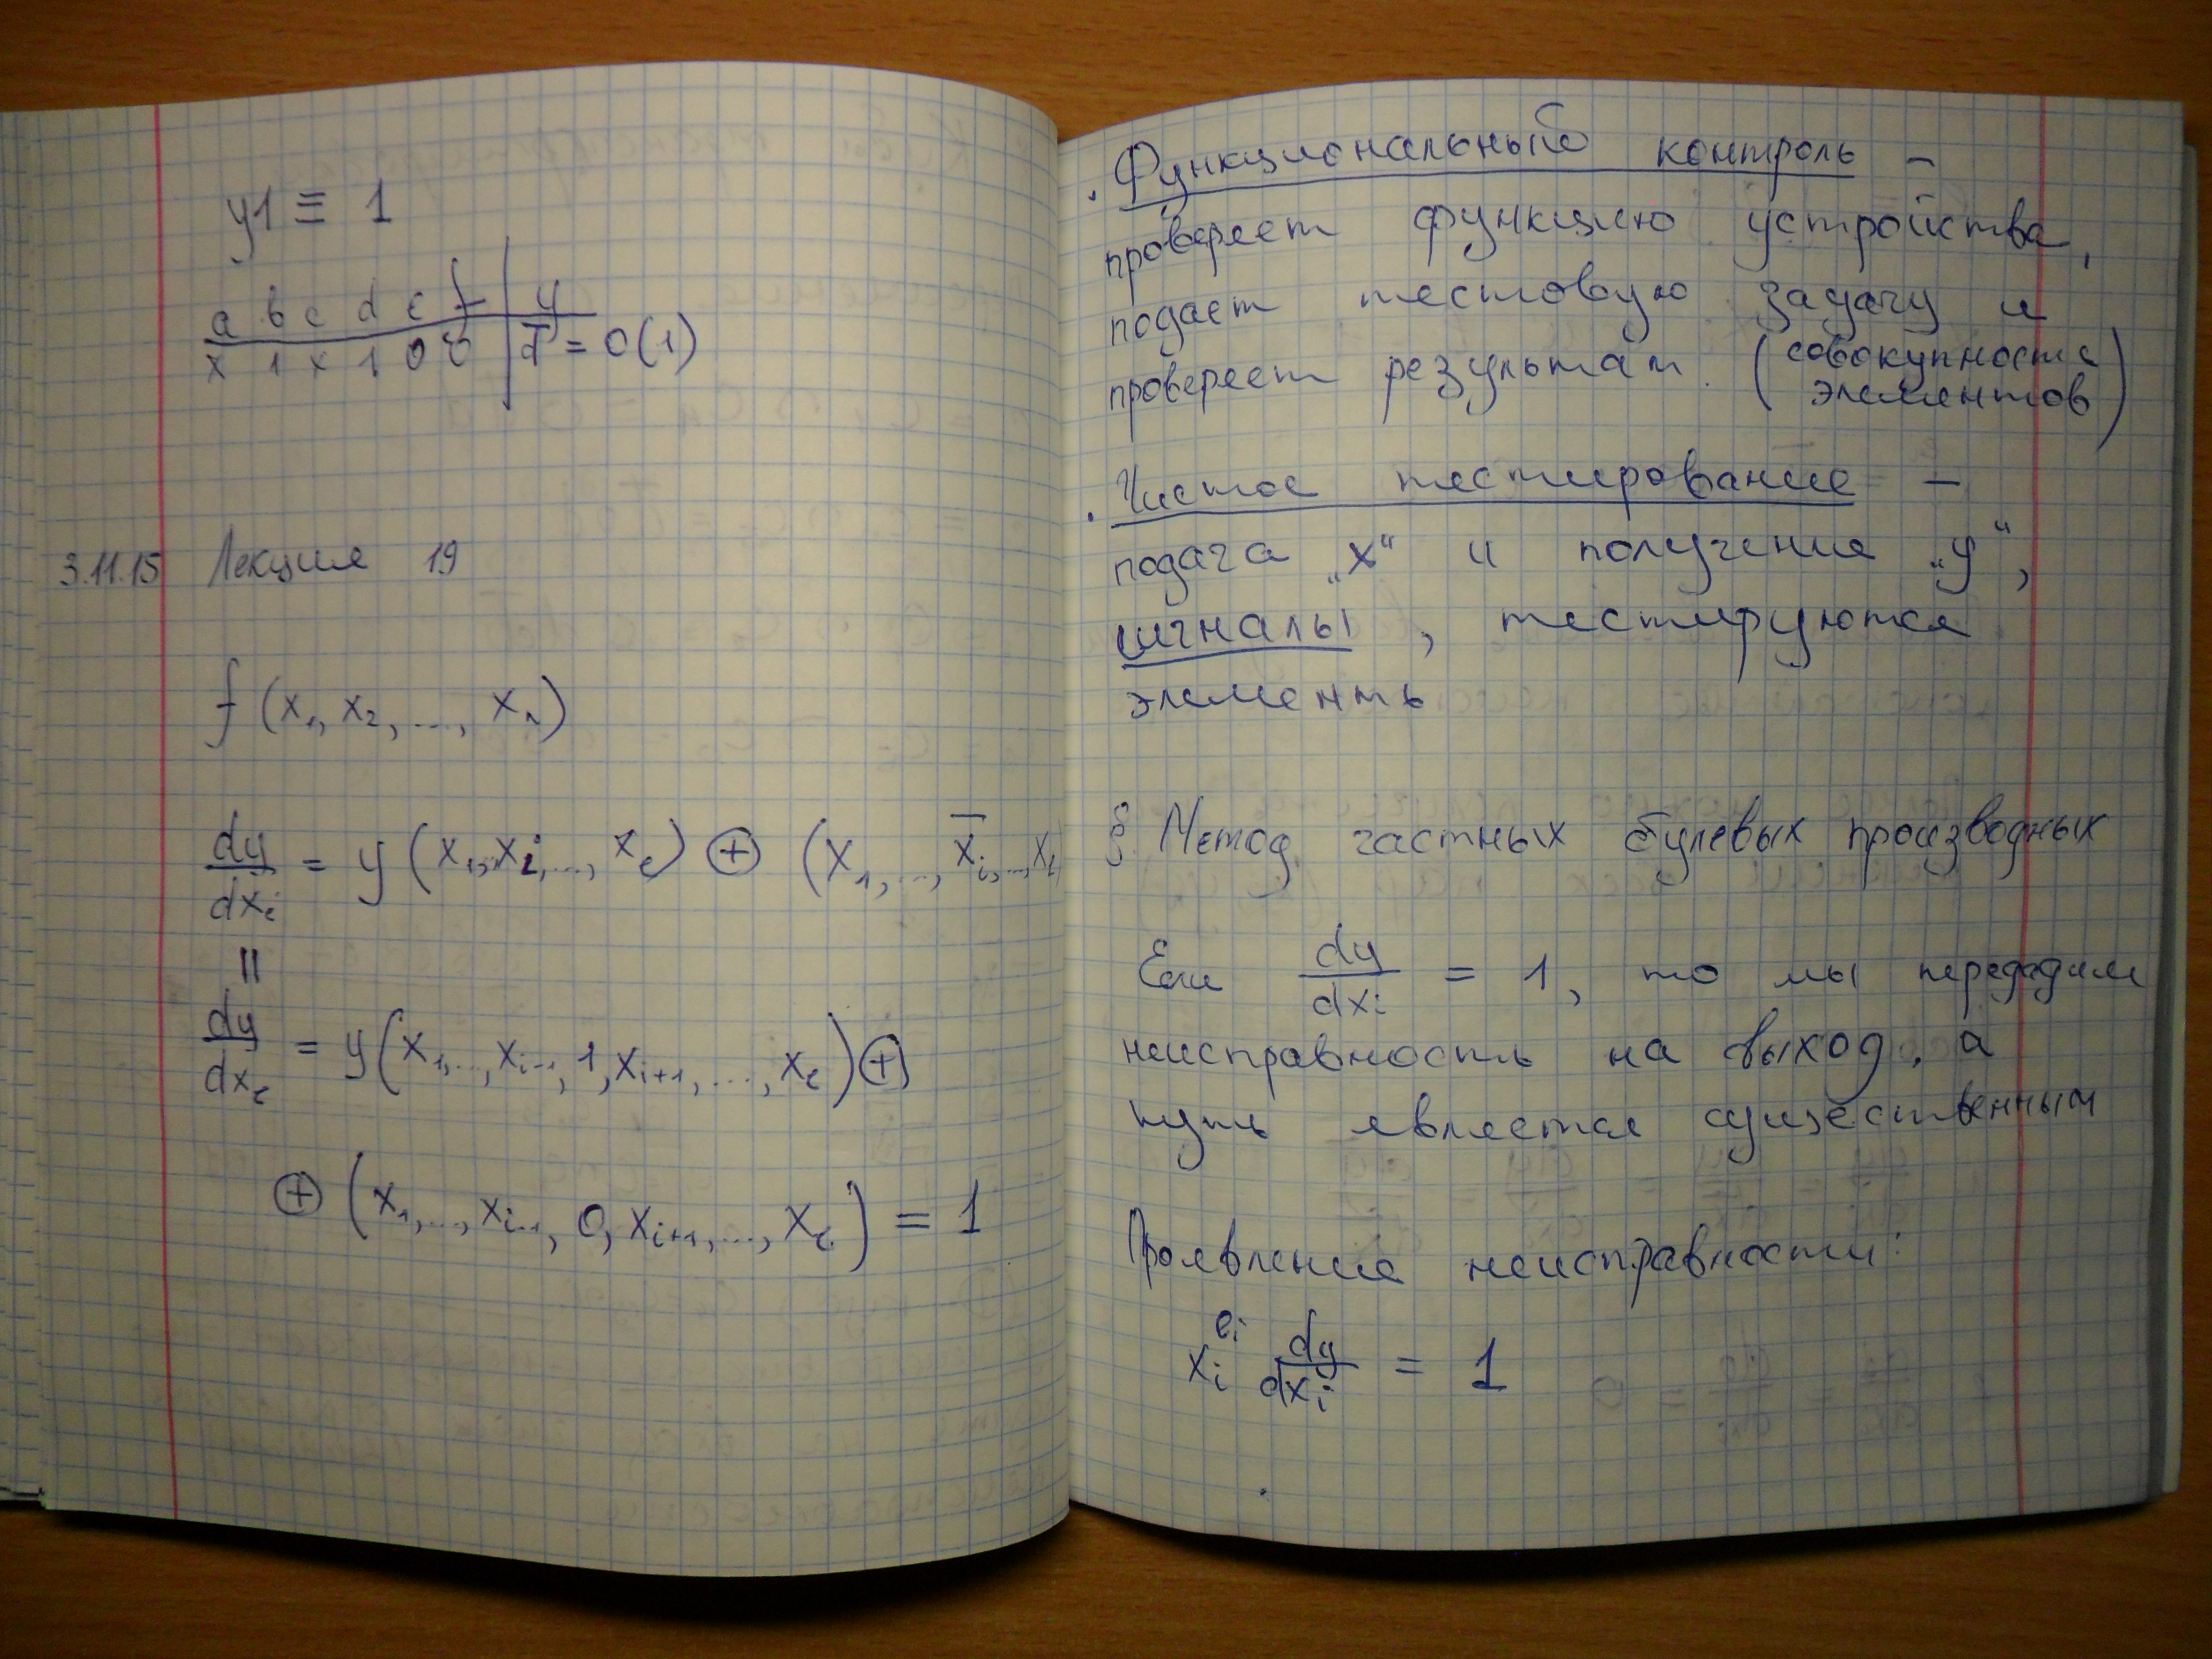 y1 ≡ 1
a b c d e f | y
x 1 x 1 0 0 | d̅ = 0(1)
3.11.15 Лекция 19
f (x₁, x₂, ..., xₙ)
dy/dxᵢ = y (x₁, xᵢ, ..., xₑ) ⊕ (x₁, ..., x̅ᵢ, ..., xₑ
॥
dy/dxᵢ = y(x₁, ..., xᵢ₋₁, 1, xᵢ₊₁, ..., xₑ) ⊕
⊕ (x₁, ..., xᵢ₋₁, 0, xᵢ₊₁, ..., xₑ) = 1
. Функциональный контроль –
проверяет функцию устройства,
подает тестовую задачу и
проверяет результат. (совокупность
элементов)
. Чистое тестирование –
подача „x“ и получение „y“,
сигналы, тестируются
элементы
§ Метод частных булевых производных
Если dy/dxᵢ = 1, то мы передадим
неисправность на выход, а
путь является существенным
Проявление неисправности:
xᵢ^eᵢ dy/dxᵢ = 1